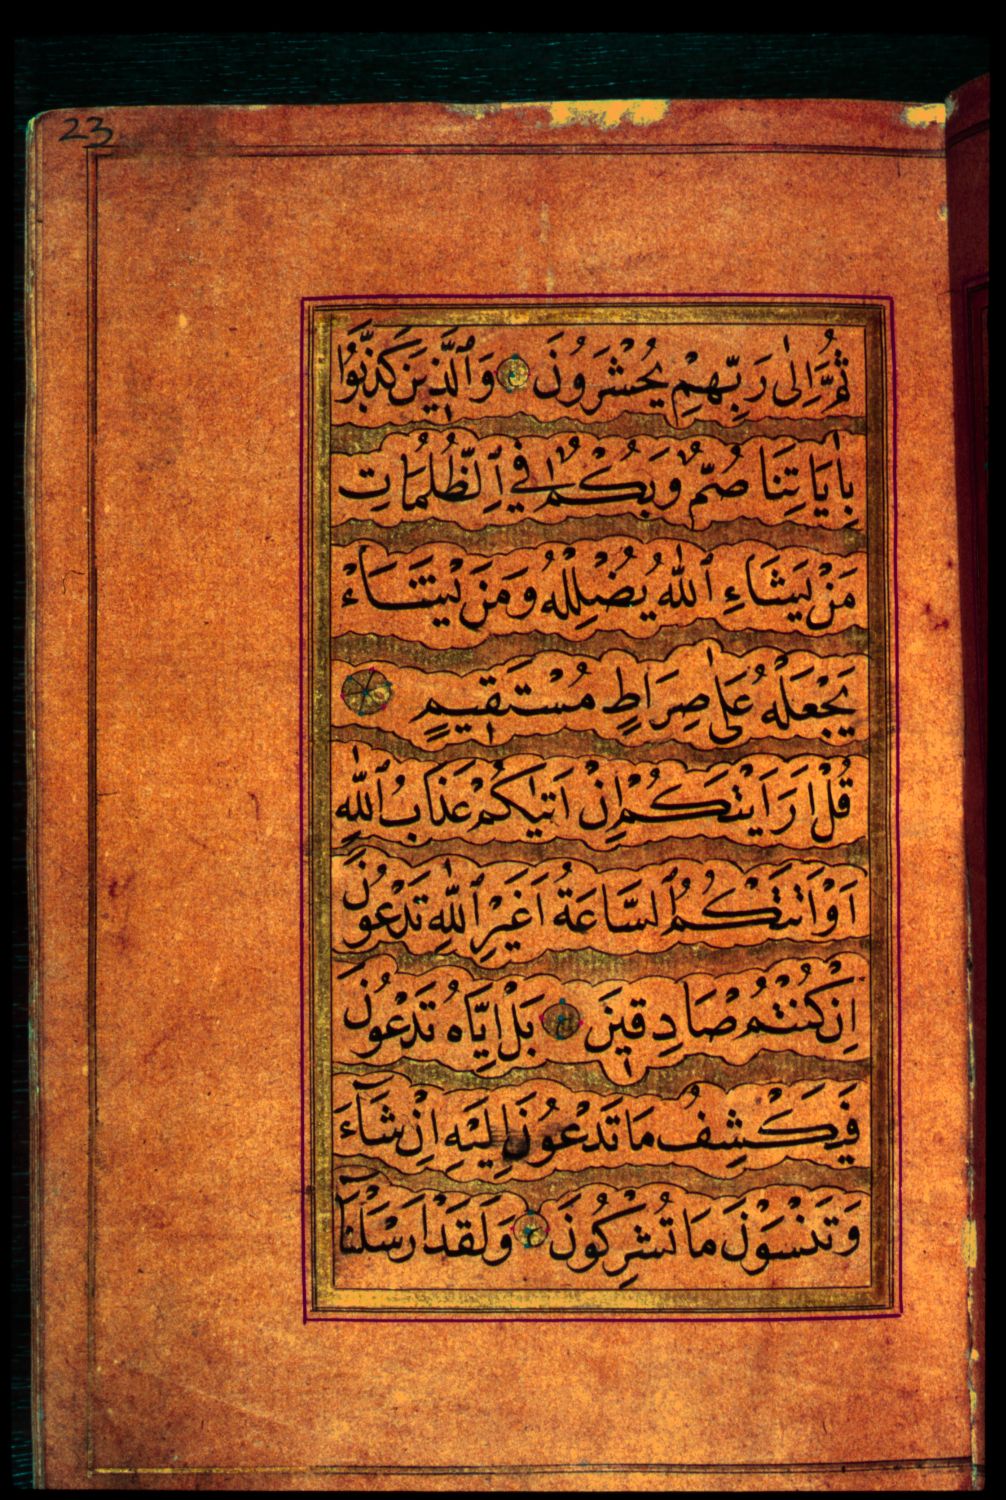 23
ثُمَّ اِلٰى رَبِّهِمْ يُحْشَرُونَ وَٱلَّذِينَ كَذَّبُوا
بِاٰيَاتِنَا صُمٌّ وَبُكْمٌ فِي ٱلظُّلُمَاتِ
مَنْ يَشَاءِ ٱللّٰهُ يُضْلِلْهُ وَمَنْ يَشَاءْ
يَجْعَلْهُ عَلٰى صِرَاطٍ مُسْتَقِيمٍ
قُلْ اَرَاَيْتَكُمْ اِنْ اَتٰيكُمْ عَذَابُ ٱللّٰهِ
اَوْ اَتَتْكُمُ ٱلسَّاعَةُ اَغَيْرَ ٱللّٰهِ تَدْعُونَ
اِنْ كُنْتُمْ صَادِقِينَ بَلْ اِيَّاهُ تَدْعُونَ
فَيَكْشِفُ مَا تَدْعُونَ اِلَيْهِ اِنْ شَآءَ
وَتَنْسَوْنَ مَا تُشْرِكُونَ وَلَقَدْ اَرْسَلْنَآ